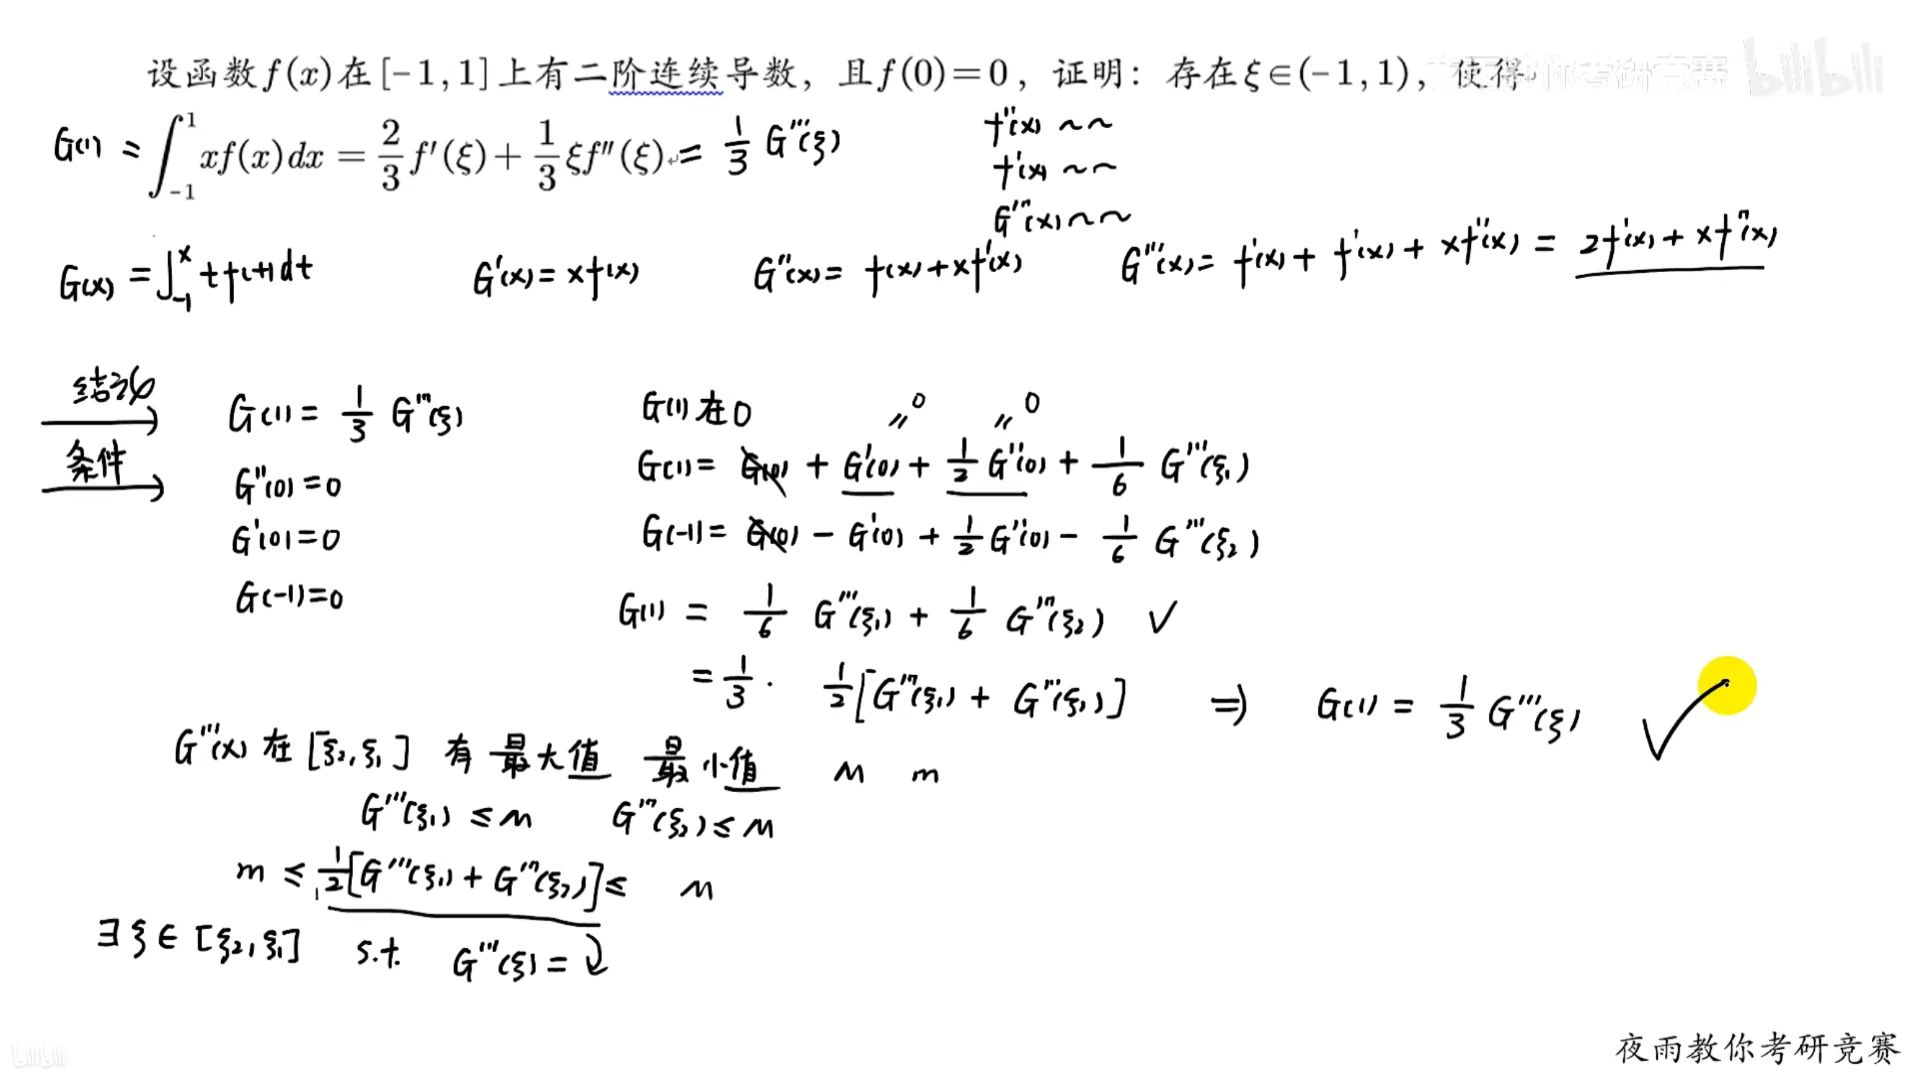 设函数f(x)在[-1,1]上有二阶连续导数，且f(0)=0，证明：存在ξ∈(-1,1)，使得
G(1) = ∫_{-1}^{1} xf(x)dx = 2/3 f′(ξ) + 1/3 ξf″(ξ) = 1/3 G‴(ξ)
f″(x) ~~
f′(x) ~~
G‴(x) ~~
G(x) = ∫_{-1}^{x} t f(t)dt G′(x) = xf(x) G″(x) = f(x)+xf′(x) G‴(x) = f′(x) + f′(x) + xf″(x) = 2f′(x) + xf″(x)
结论 G(1) = 1/3 G‴(ξ)
条件 G″(0) = 0
G′(0) = 0
G(-1) = 0
G(1) 在 0 "0 "0
G(1) = G(0) + G′(0) + 1/2 G″(0) + 1/6 G‴(ξ₁)
G(-1) = G(0) - G′(0) + 1/2 G″(0) - 1/6 G‴(ξ₂)
G(1) = 1/6 G‴(ξ₁) + 1/6 G‴(ξ₂) ✓
= 1/3 · 1/2 [G‴(ξ₁) + G‴(ξ₁)] ⇒ G(1) = 1/3 G‴(ξ) ✓
G‴(x) 在 [ξ₂, ξ₁] 有 最大值 最小值 M m
G‴(ξ₁) ≤ M G‴(ξ₂) ≤ M
m ≤ 1/2 [G‴(ξ₁) + G‴(ξ₂)] ≤ M
∃ ξ ∈ [ξ₂, ξ₁] s.t. G‴(ξ) =
夜雨教你考研竞赛
bilibili
bilibili